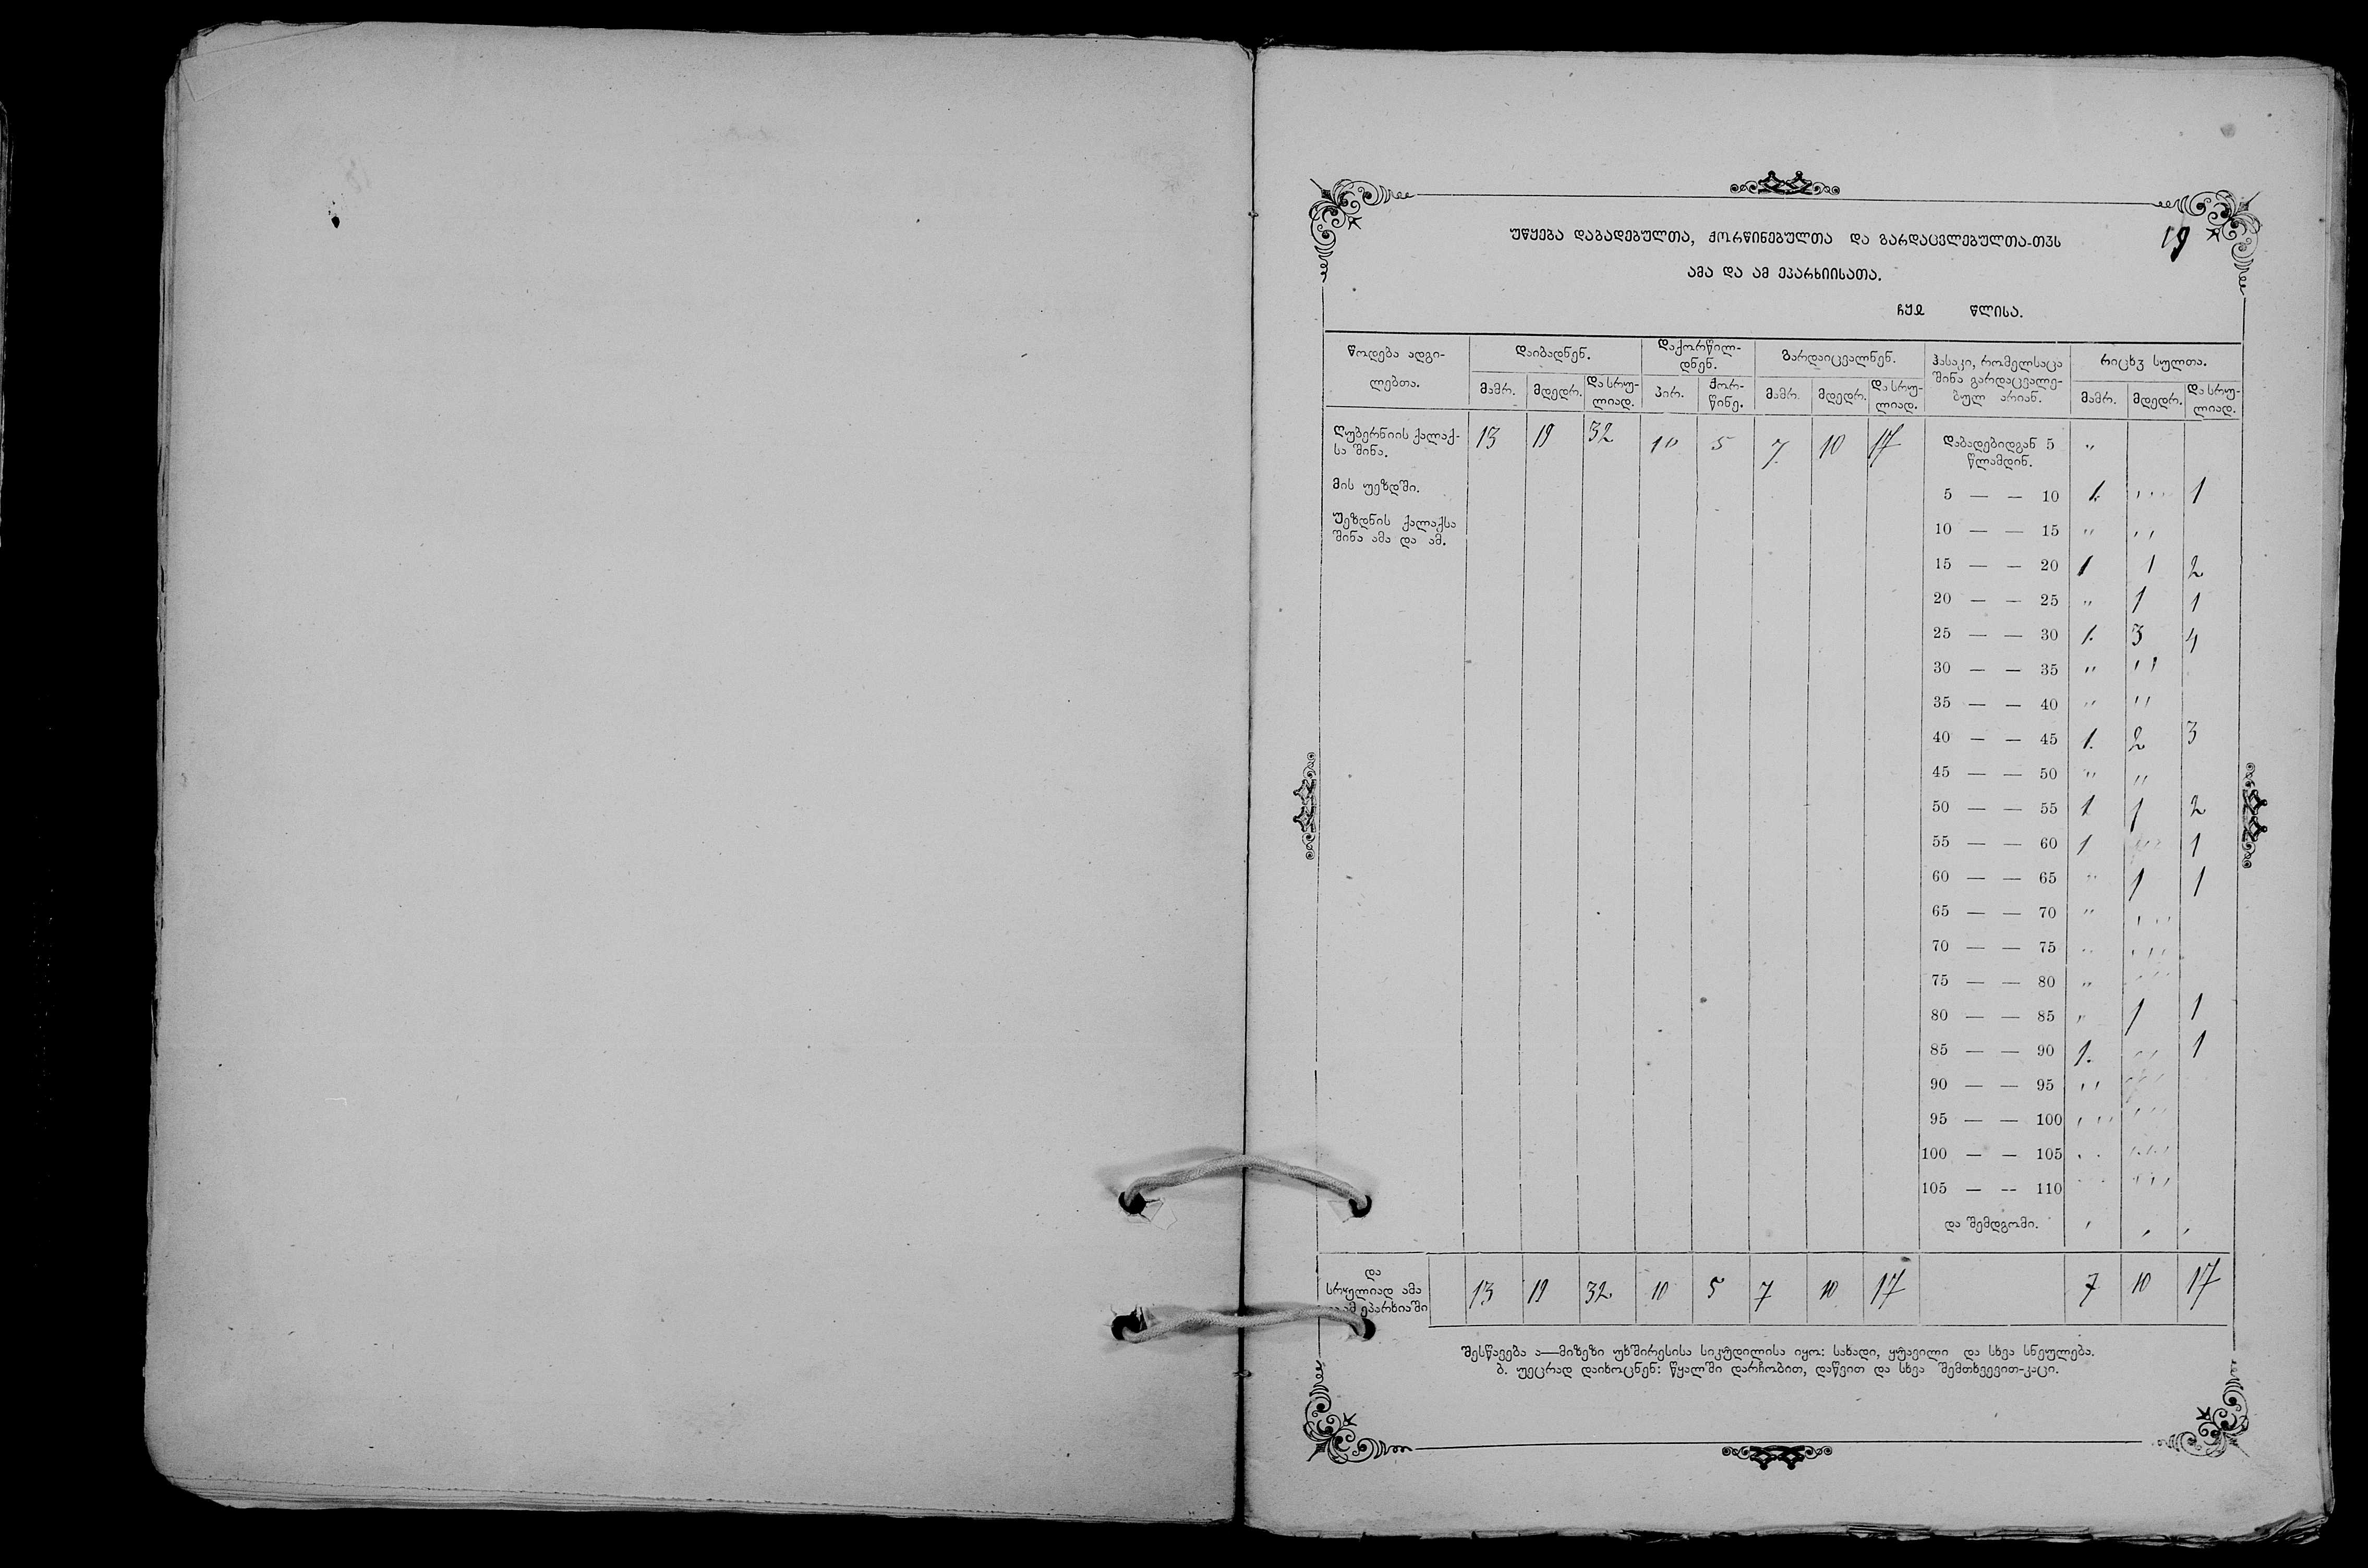 უწყება დაბადებულთა, ქორწინებულთა და გარდაცვლებულთა-თჳს
19
ამა და ამ ეპარხიისათა.
ჩყჲ წლისა.
წოდება ადგი-
ლებთა.
დაიბადნენ.
დაქორწილ-
დნენ.
გარდაიცვალნენ.
ჰასაკი, რომელსაცა
შინა გარდაცვალე-
ბულ არიან.
რიცხჳ სულთა.
მამრ. მდედრ. და სრუ-
ლიად.
პირ. ქორ-
წინე.
მამრ. მდედრ. და სრუ-
ლიად.
მამრ. მდედრ. და სრუ-
ლიად.
ღუბერნიის ქალაქ-
სა შინა.
13 19 32 10 5 7 10 17
დაბადებიდგან 5 "
წლამდინ.
მის უეზდში.
უეზდნის ქალაქსა
შინა ამა და ამ.
5 — — 10 1 " 1
10 — — 15 " "
15 — — 20 1 1 2
20 — — 25 " 1 1
25 — — 30 1. 3 4
30 — — 35 " "
35 — — 40 " "
40 — — 45 1. 2 3
45 — — 50 " "
50 — — 55 1 1 2
55 — — 60 1 " 1
60 — — 65 " 1 1
65 — — 70 " "
70 — — 75 " "
75 — — 80 " "
80 — — 85 " 1 1
85 — — 90 1. " 1
90 — — 95 " "
95 — — 100 " "
100 — — 105 " "
105 — — 110 " "
და შემდგომი. " " "
და
სრულიად ამა
ამ ეპარხიაში
13 19 32 10 5 7 10 17 7 10 17
შესწავება ა—მიზეზი უხშირესისა სიკუდილისა იყო: სახადი, ყუავილი და სხვა სნეულება.
ბ. უეცრად დაიხოცნენ: წყალში დარჩობით, დაწვით და სხვა შემთხვევით-კაცი.